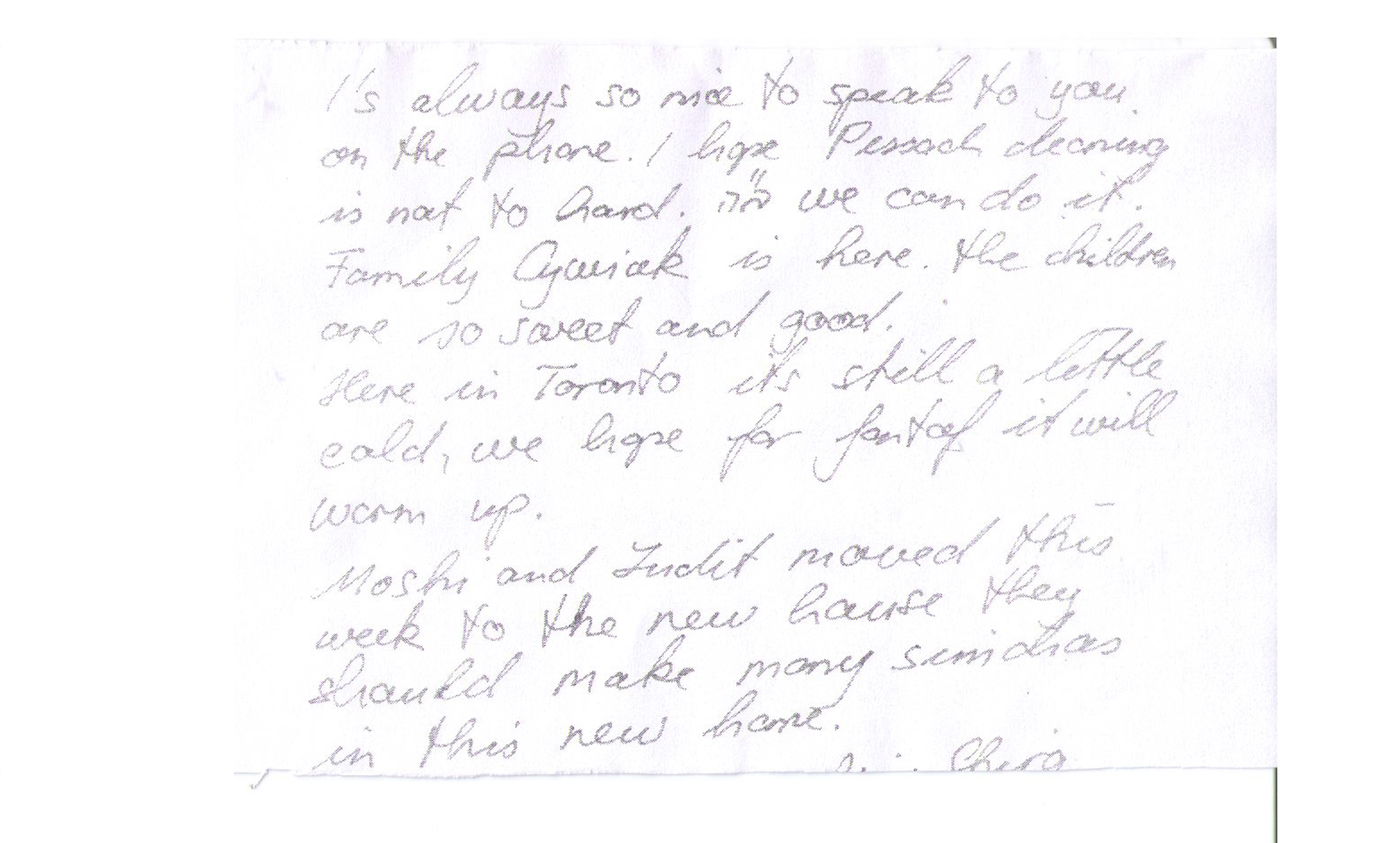 I's always so nice to speak to you
on the phone. I hope Pessach cleaning
is not to hard. we can do it.
Family Cywiak is here. the children
are so sweet and good.
Here in Toronto its still a little
cold, we hope for jontof it will
warm up.
Moshi and Judit moved this
week to the new hause they
should make many simchas
in this new home.